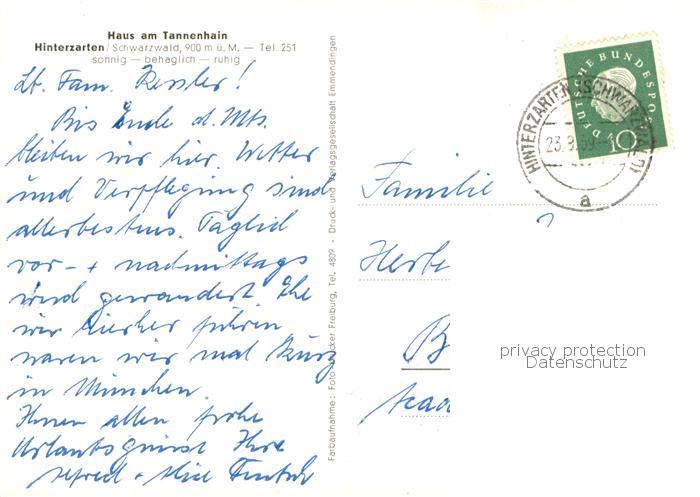 Haus am Tannenhain
Hinterzarten / Schwarzwald, 900 m ü. M. — Tel. 251
sonnig — behaglich — ruhig
Lb. Fam. Kessler!
Bis Ende d. Mts.
bleiben wir hier. Wetter
und Verpflegung sind
allerbestens. Täglich
vor- + nachmittags
wird gewandert. Ehe
wir hierher fuhren
waren wir mal kurz
in München.
Ihnen allen frohe
Urlaubsgrüsse Ihre
Alfred + Alice
Farbaufnahme: Foto Freiburg, Tel. 4809 • Druck- und Verlagsgesellschaft Emmendingen
DEUTSCHE BUNDESPOST
10
HINTERZARTEN (SCHWARZWALD)
23.9.59
a
Familie
Herbe
B
Acad
privacy protection
Datenschutz